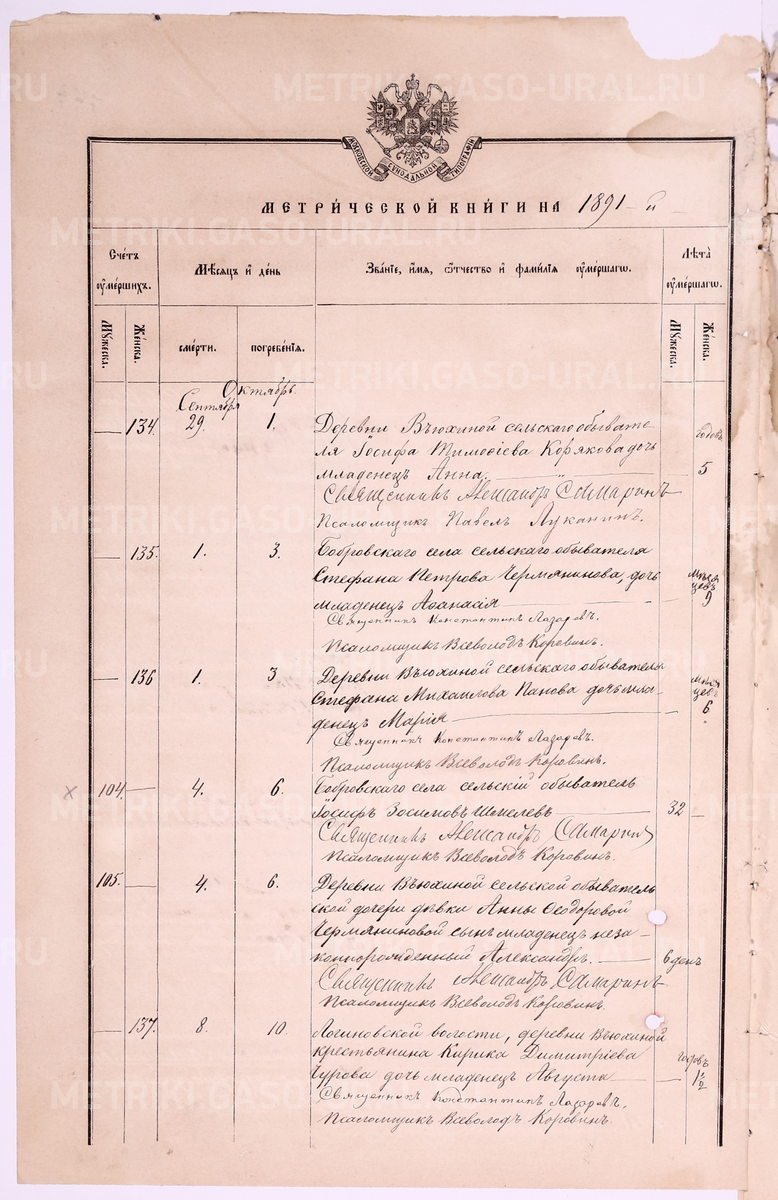 METRIKI.GASO-URAL.RU
МОСКОВСКОЙ СѴНОДАЛЬНОЙ ТИПОГРАФІИ
МЕТРИ́ЧЕСКОЙ КНИ́ГИ НА 1891-й
Счетъ ᲂу҆ме́ршихъ.
Мѣ́сяцъ и҆ де́нь
Зва́нїе, и҆́мя, ѻ҆́тчество и҆ фами́лїя ᲂу҆ме́ршагѡ.
Лѣ́та ᲂу҆ме́ршагѡ.
Мꙋ́жеска.
Же́нска.
сме́рти.
погребе́нїя.
Мꙋ́жеска.
Же́нска.
Сентября
Октябрь
134. 29. 1. Деревни Вьюхиной сельскаго обывате-
ля Іосифа Тимоѳіева Корякова дочь
годовъ
младенецъ Анна. 5
Священникъ Александръ Самаринъ
Псаломщикъ Павелъ Луканинъ.
135. 1. 3. Бобровскаго села сельскаго обывателя
Стефана Петрова Чермянинова, дочь
мѣся
цевъ
младенецъ Аѳанасія 9
Священникъ Константинъ Лазаревъ.
Псаломщикъ Всеволодъ Коровинъ.
136 1. 3 Деревни Вьюхиной сельскаго обывателя
Стефана Михаилова Панова дочь мла-
мѣся
цевъ
денецъ Марія 6
Священникъ Константинъ Лазаревъ.
Псаломщикъ Всеволодъ Коровинъ.
104. 4. 6. Бобровскаго села сельскій обыватель
Іосифъ Зосимовъ Шмелевъ 32
Священникъ Александръ Самаринъ
Псаломщикъ Всеволодъ Коровинъ.
105. 4. 6. Деревни Вьюхиной сельской обыватель
ской дочери дѣвки Анны Ѳеодоровой
Чермяниновой сынъ младенецъ неза-
коннорожденный Александръ. 6 дней
Священникъ Александръ Самаринъ
Псаломщикъ Всеволодъ Коровинъ.
137. 8. 10. Логиновской волости, деревни Вьюхиной
крестьянина Кирика Димитріева
годовъ
Чурова дочь младенецъ Августа 1½
Священникъ Константинъ Лазаревъ.
Псаломщикъ Всеволодъ Коровинъ.